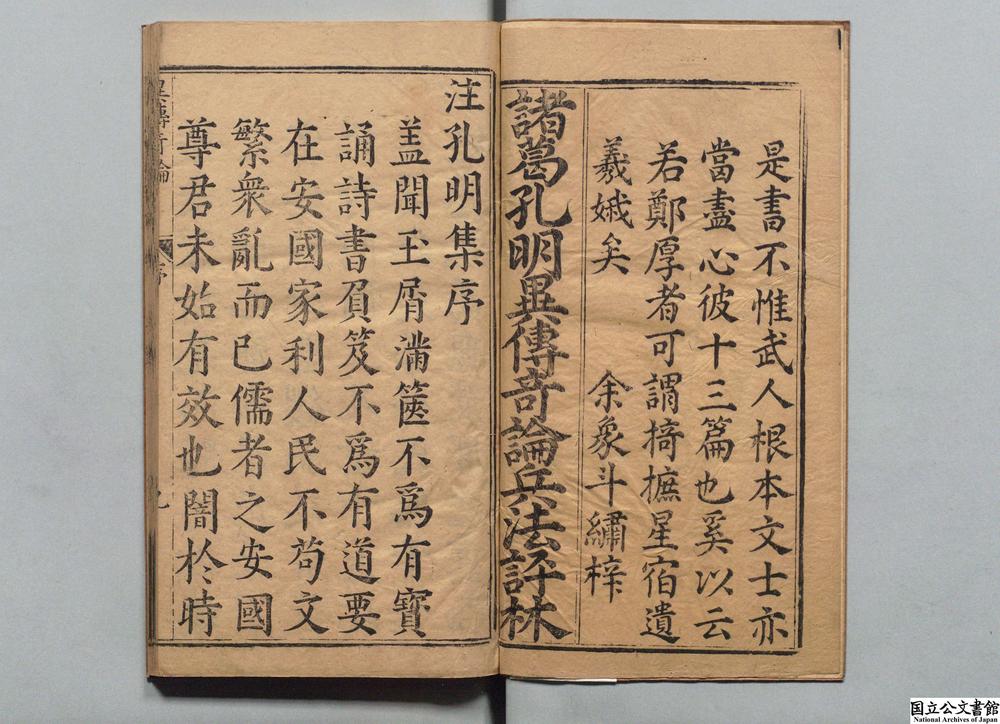 是書不惟武人根本文士亦
當盡心彼十三篇也奚以云
若鄭厚者可謂掎摭星宿遺
羲娥矣　余象斗繡梓
諸葛孔明異傳奇論兵法評林
注孔明集序
盖聞玉屑滿篋不爲有寶
誦詩書負笈不爲有道要
在安國家利人民不苟文
繁衆亂而已儒者之安國
尊君未始有效也闇於時
異傳奇論
序
国立公文書館
National Archives of Japan